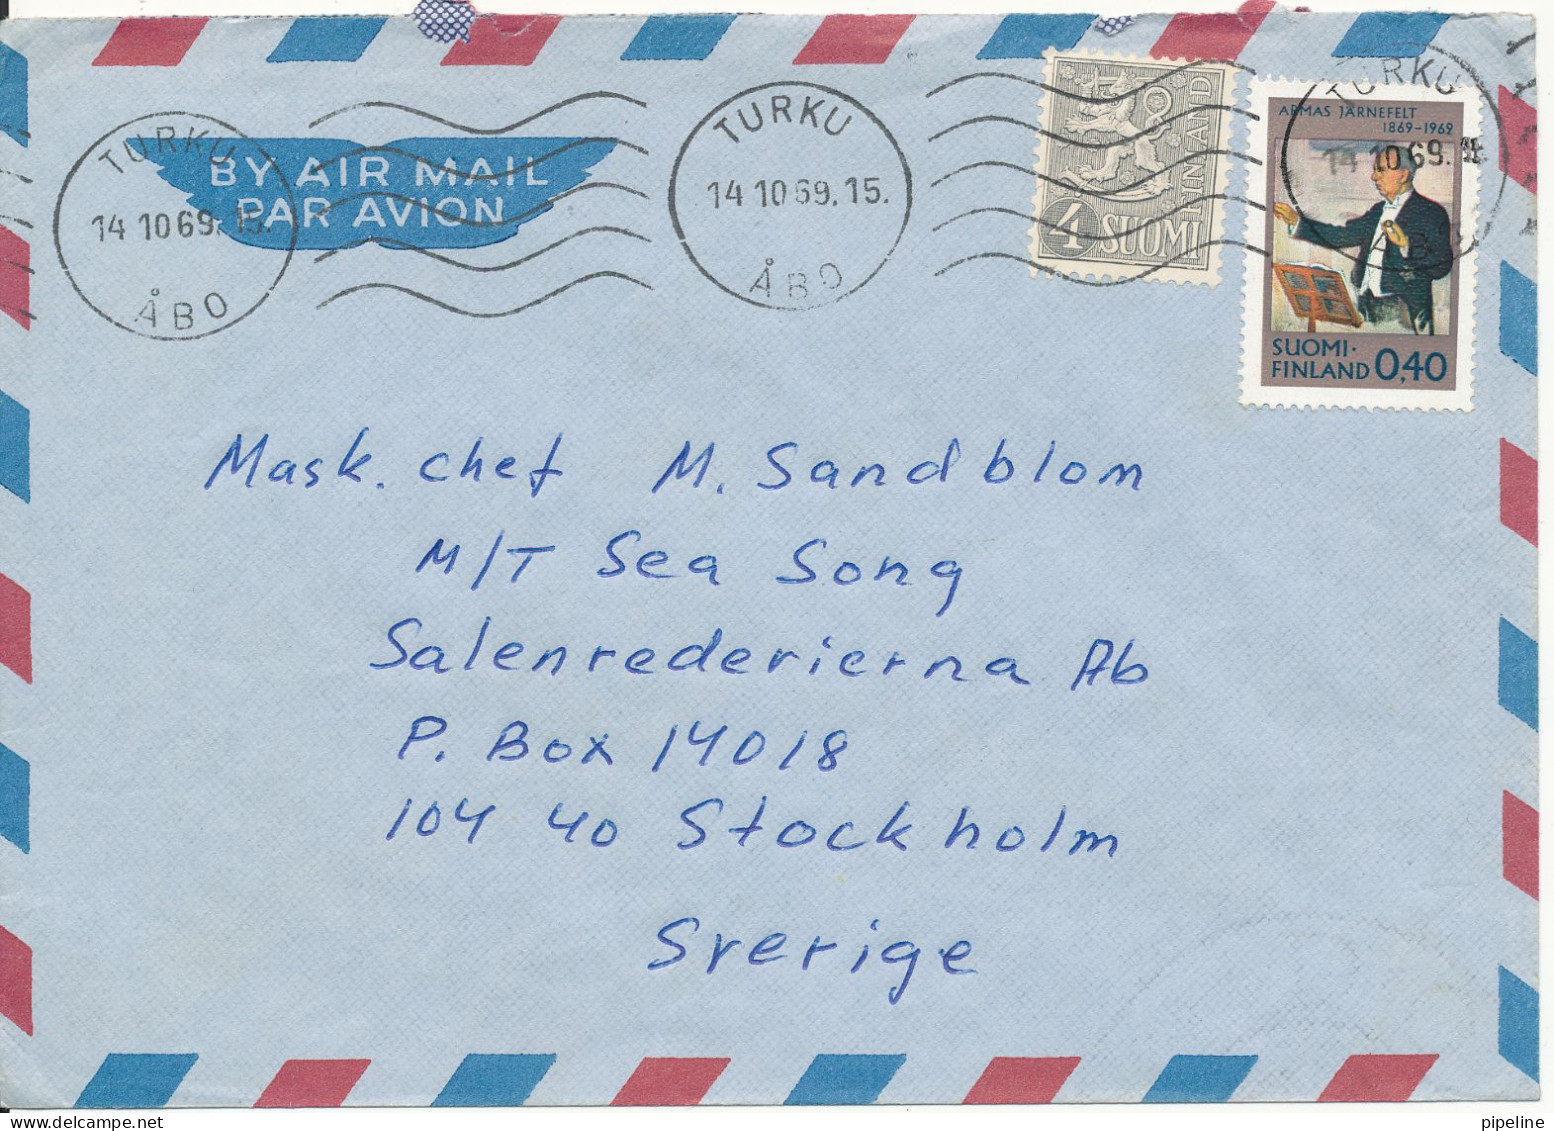 TURKU
14 10 69. 15.
ÅBO
BY AIR MAIL
PAR AVION
TURKU
14 10 69. 15.
ÅBO
4 SUOMI
FINLAND
TURKU
14 10 69. 15
ÅBO
ARMAS JÄRNEFELT
1869-1969
SUOMI·
FINLAND 0,40
Mask. chef M. Sandblom
M/T Sea Song
Salenrederierna Ab
P. Box 14018
104 40 Stockholm
Sverige
pipeline